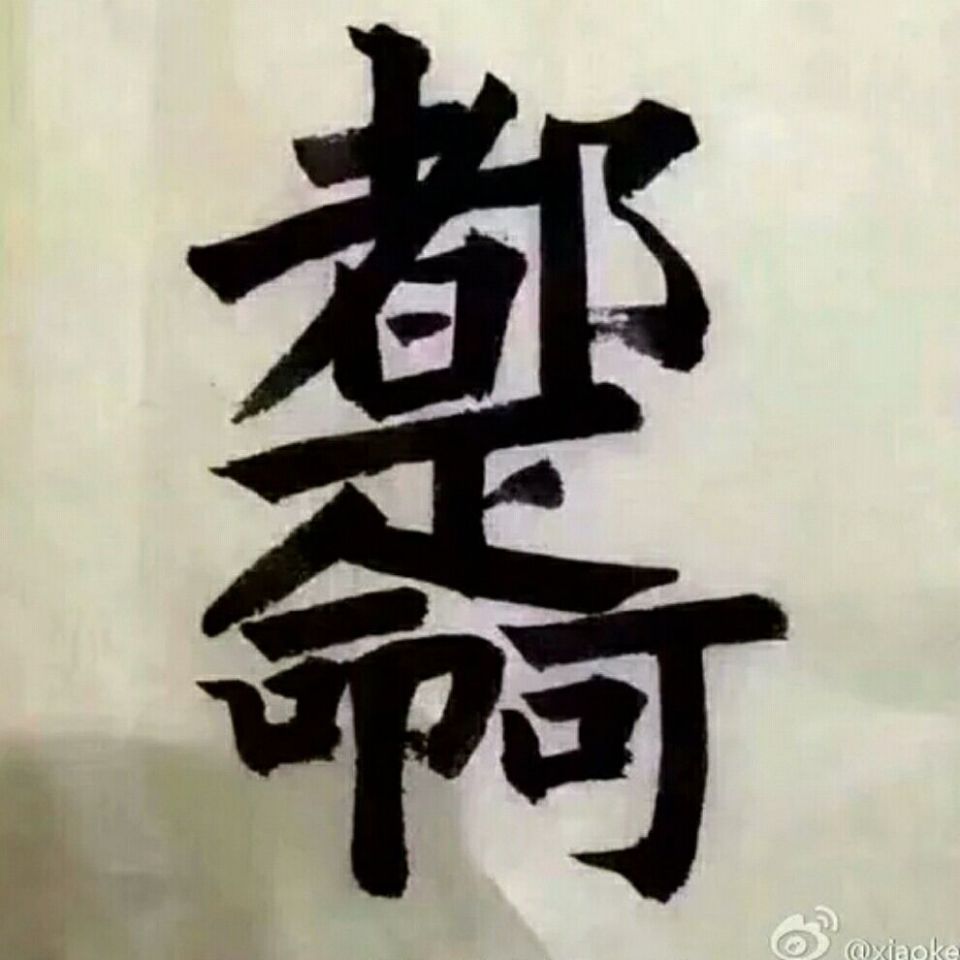 都是命啊
@xiaoke